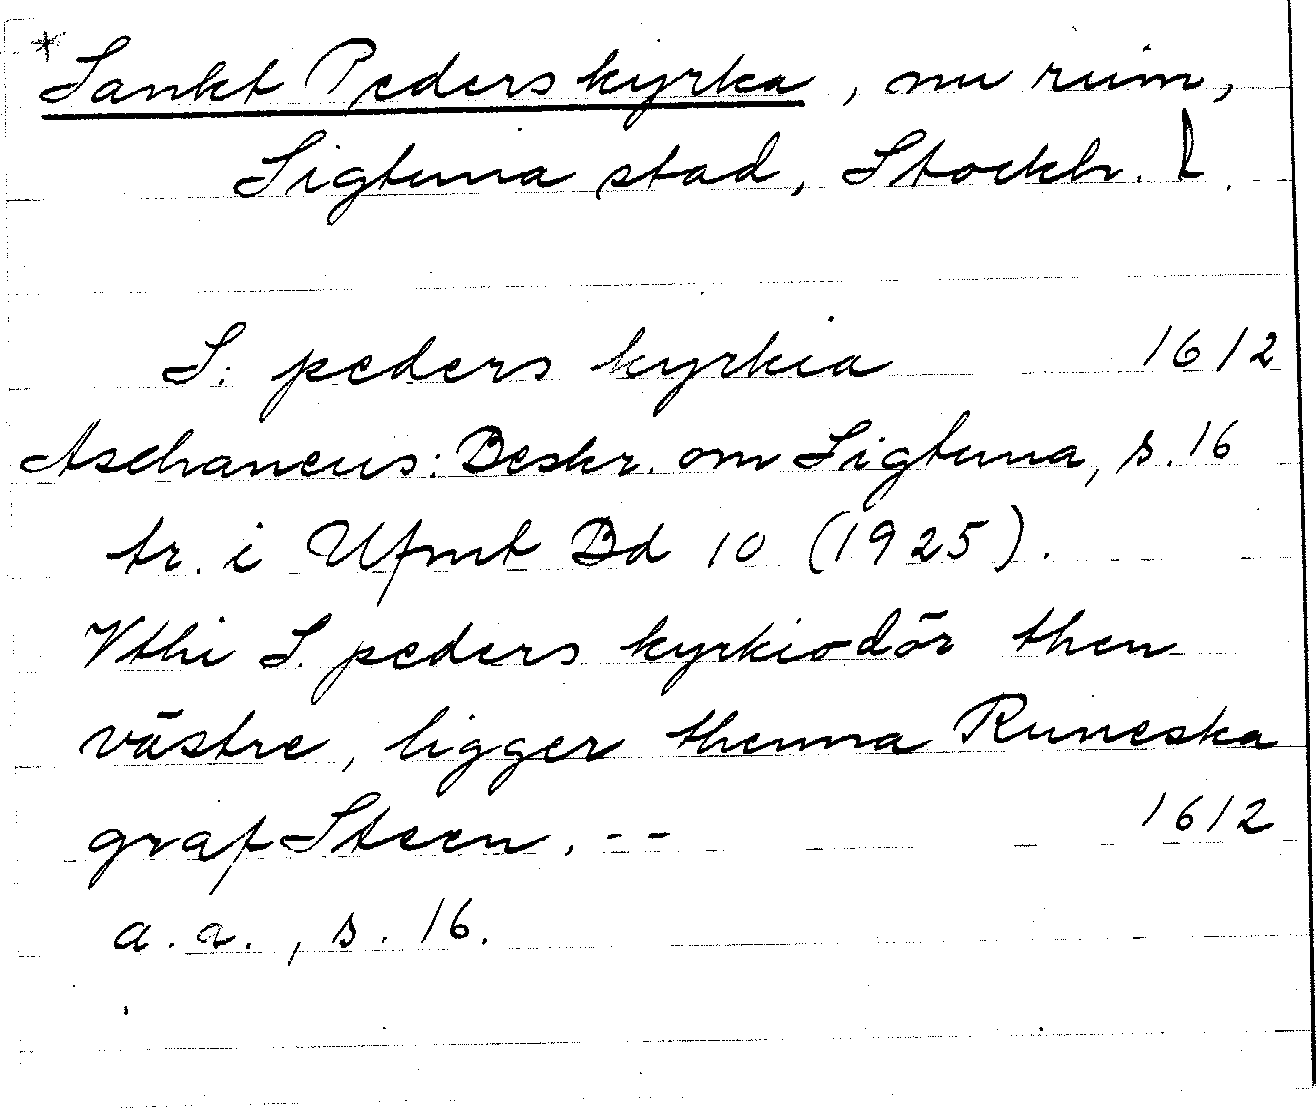 * Sankt Peders kyrka, nu ruin,
Sigtuna stad, Stockh. l.
S. peders kyrkia 1612
Aschaneus: Beskr. om Sigtuna, s. 16
tr. i Ufmt Bd 10 (1925).
Vthi S. peders kyrkiodör then
västre, ligger thenna Runeska
graf Steen. -- 1612
a.a., s. 16.